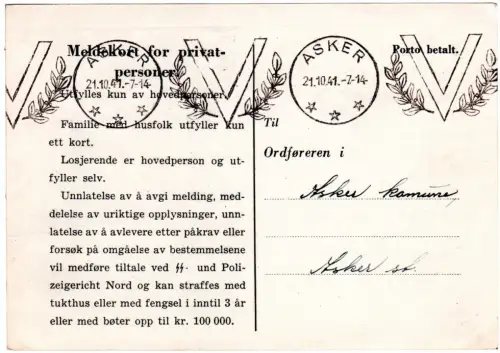 Meldekort for privat-
personer.
Utfylles kun av hovedpersoner.
Familie med husfolk utfyller kun
ett kort.
Losjerende er hovedperson og ut-
fyller selv.
Unnlatelse av å avgi melding, med-
delelse av uriktige opplysninger, unn-
latelse av å avlevere etter påkrav eller
forsøk på omgåelse av bestemmelsene
vil medføre tiltale ved ϟϟ- und Poli-
zeigericht Nord og kan straffes med
tukthus eller med fengsel i inntil 3 år
eller med bøter opp til kr. 100 000.
V
ASKER
21.10.41.-7-14-
V
ASKER
21.10.41.-7-14-
V
Porto betalt.
Til
Ordføreren i
Asker komune,
Asker st.